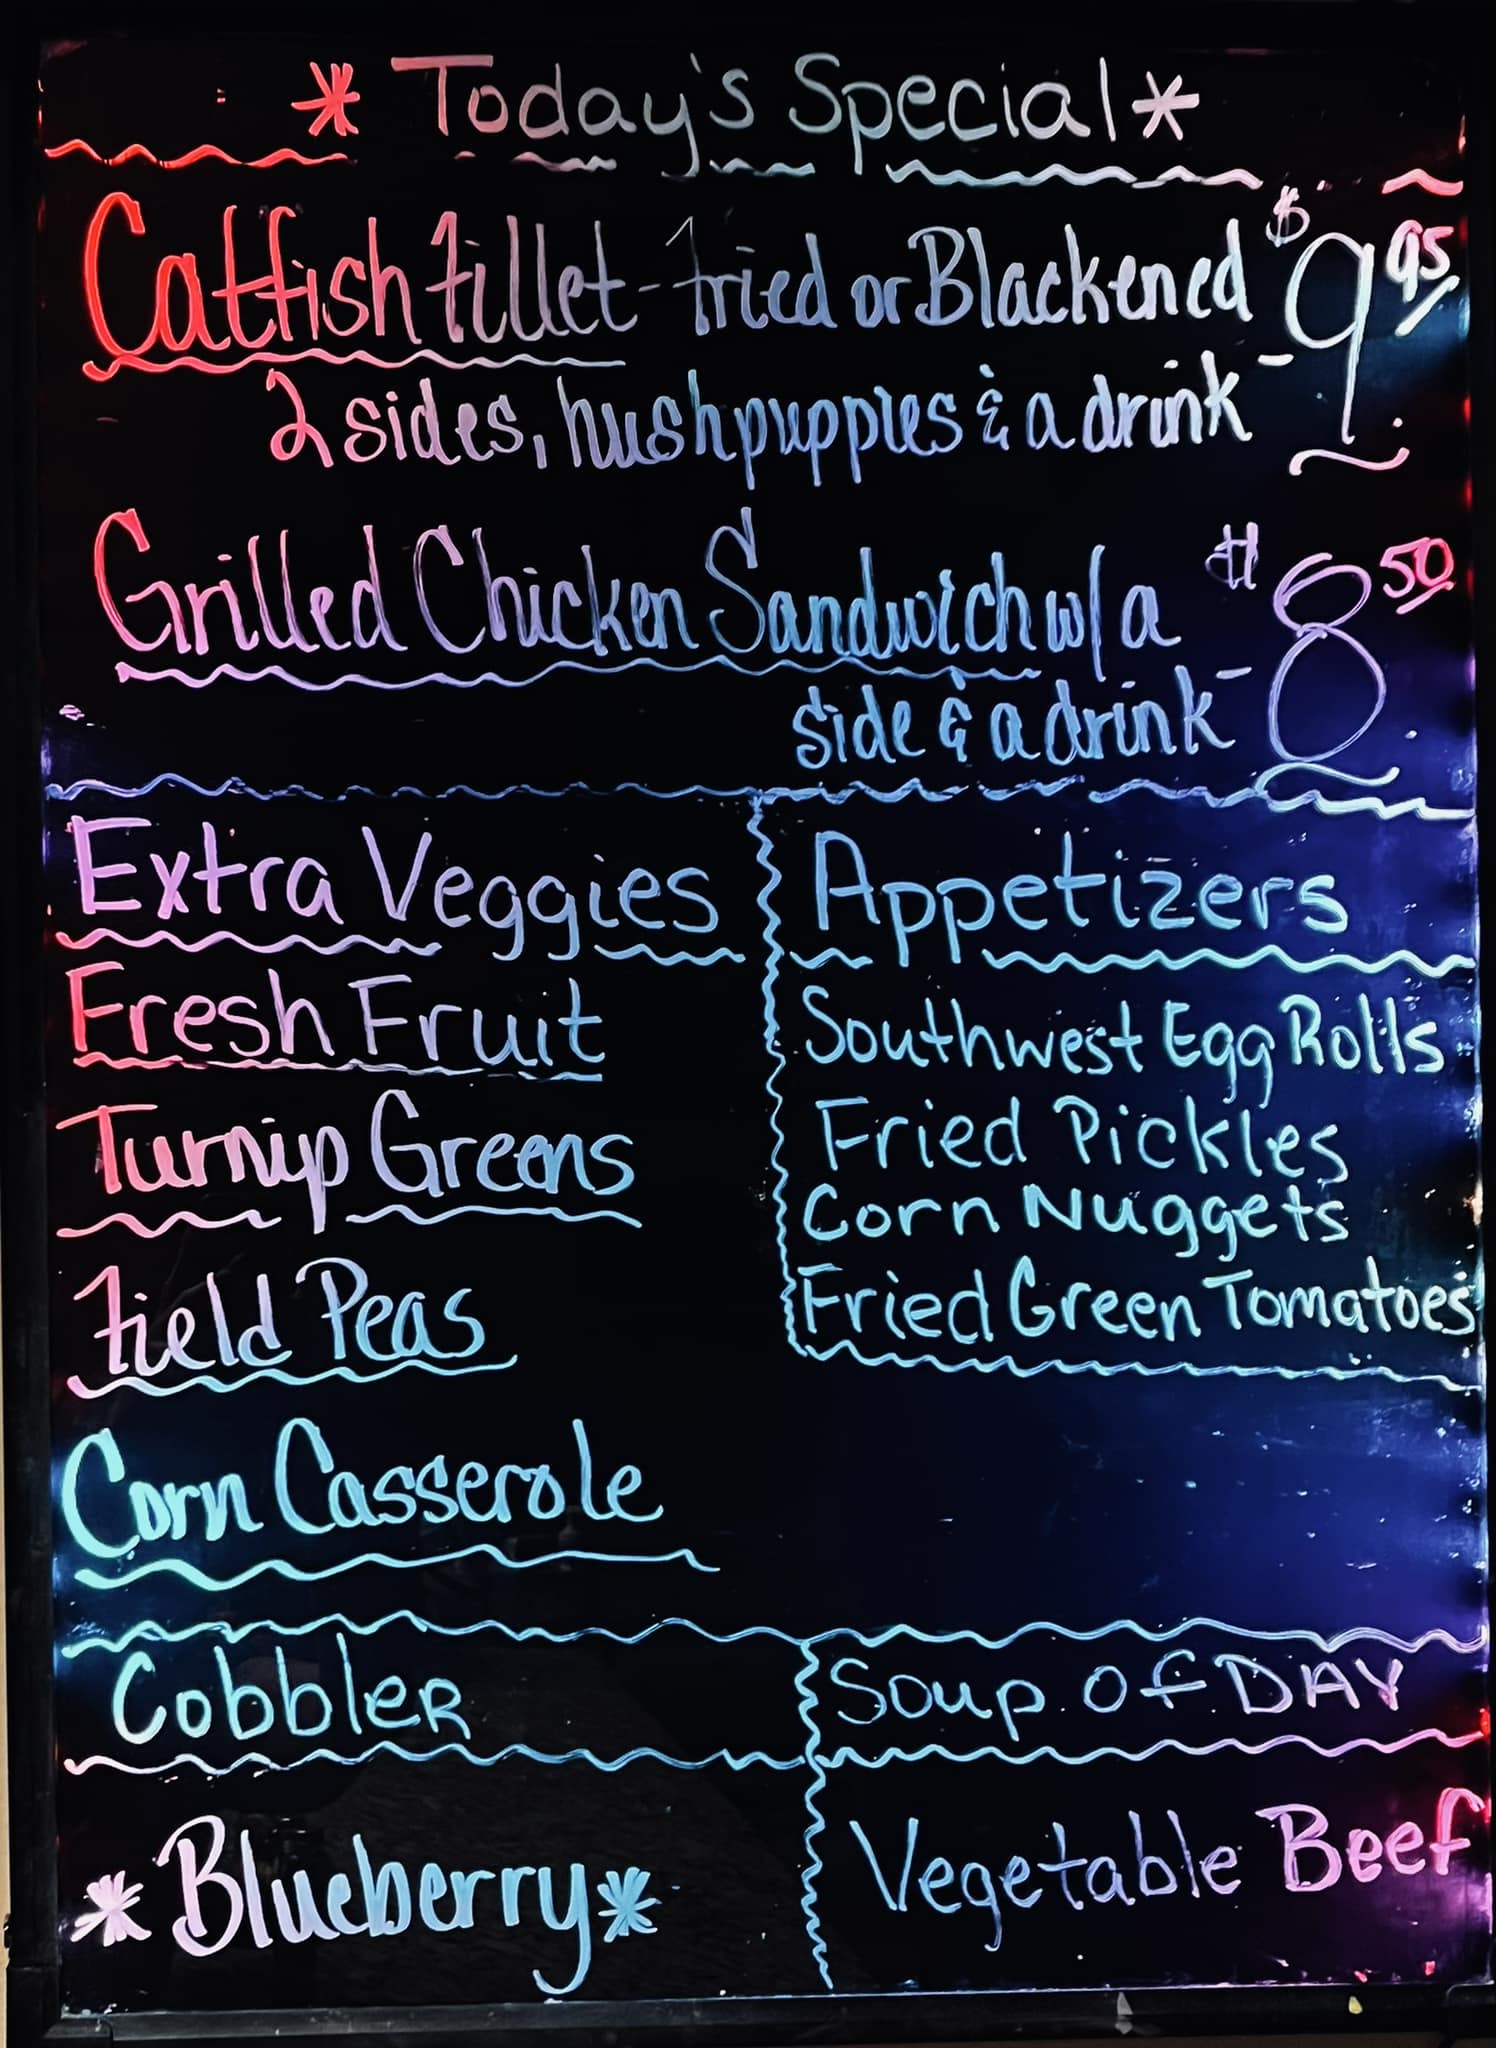 * Today's Special *
Catfish fillet - fried or Blackened $9.95
2 sides, hushpuppies & a drink
Grilled Chicken Sandwich w/ a $8.50
side & a drink
Extra Veggies
Fresh Fruit
Turnip Greens
Field Peas
Corn Casserole
Appetizers
Southwest Egg Rolls
Fried Pickles
Corn Nuggets
Fried Green Tomatoes
Cobbler
*Blueberry*
Soup of DAY
Vegetable Beef